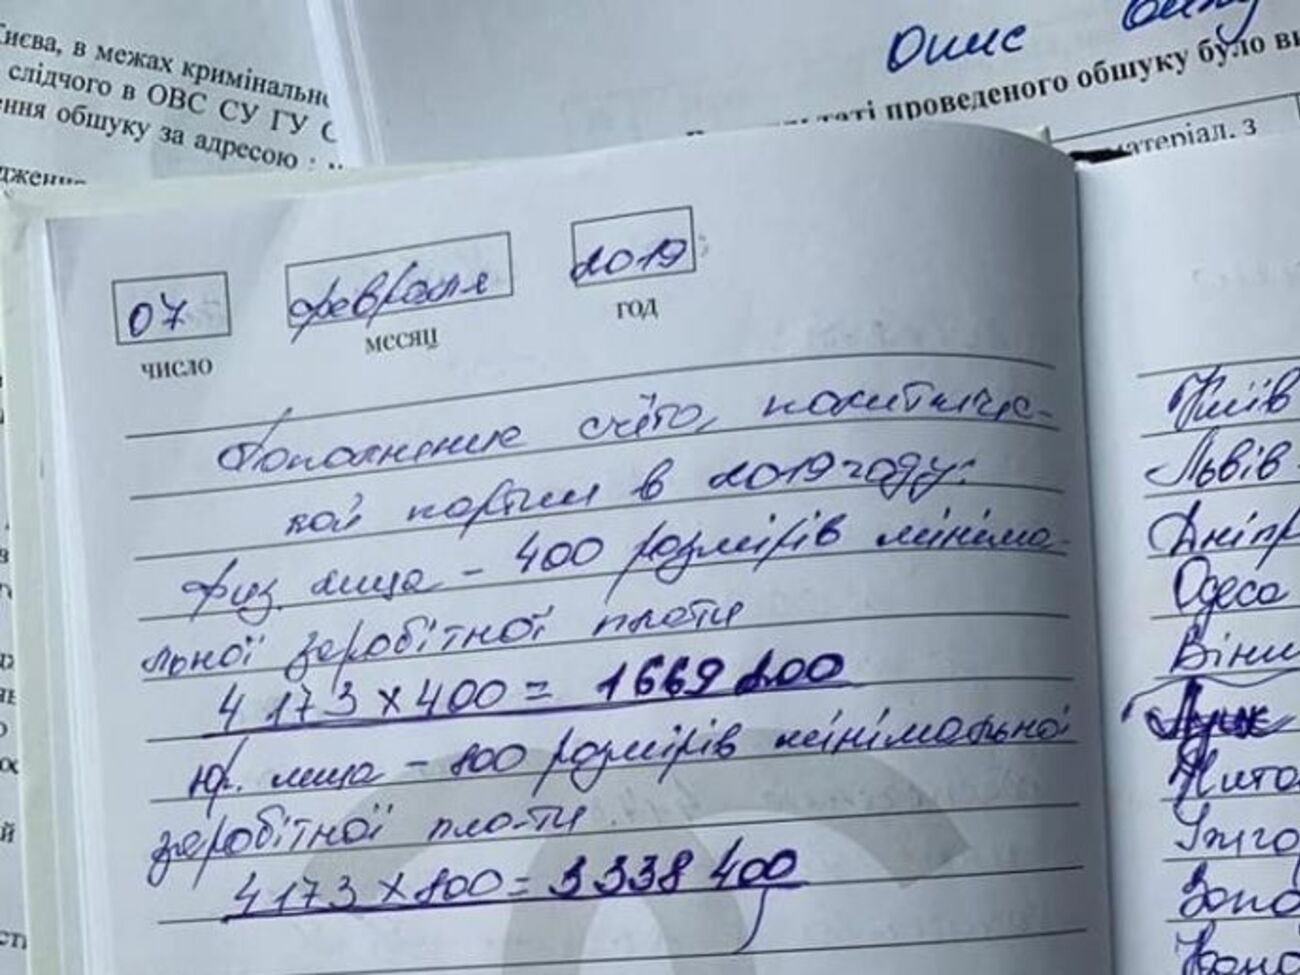 Києва, в межах кримінально
слідчого в ОВС СУ ГУ С
ення обшуку за адресою :
дження
Опис
проведеного обшуку було ви
матеріал. з
07 февраля 2019
число месяц год
Пополнение счёта, политичес-
кой партии в 2019 году:
физ. лица - 400 розмірів мініма-
льної заробітної плати
4173 х 400 = 1669 200
юр. лица - 800 розмірів мінімальної
заробітної плати.
4173 х 800 = 3338 400
Київ
Львів
Дніпр
Одеса
Вінн
Луцк
Жито
Ужго
Запо